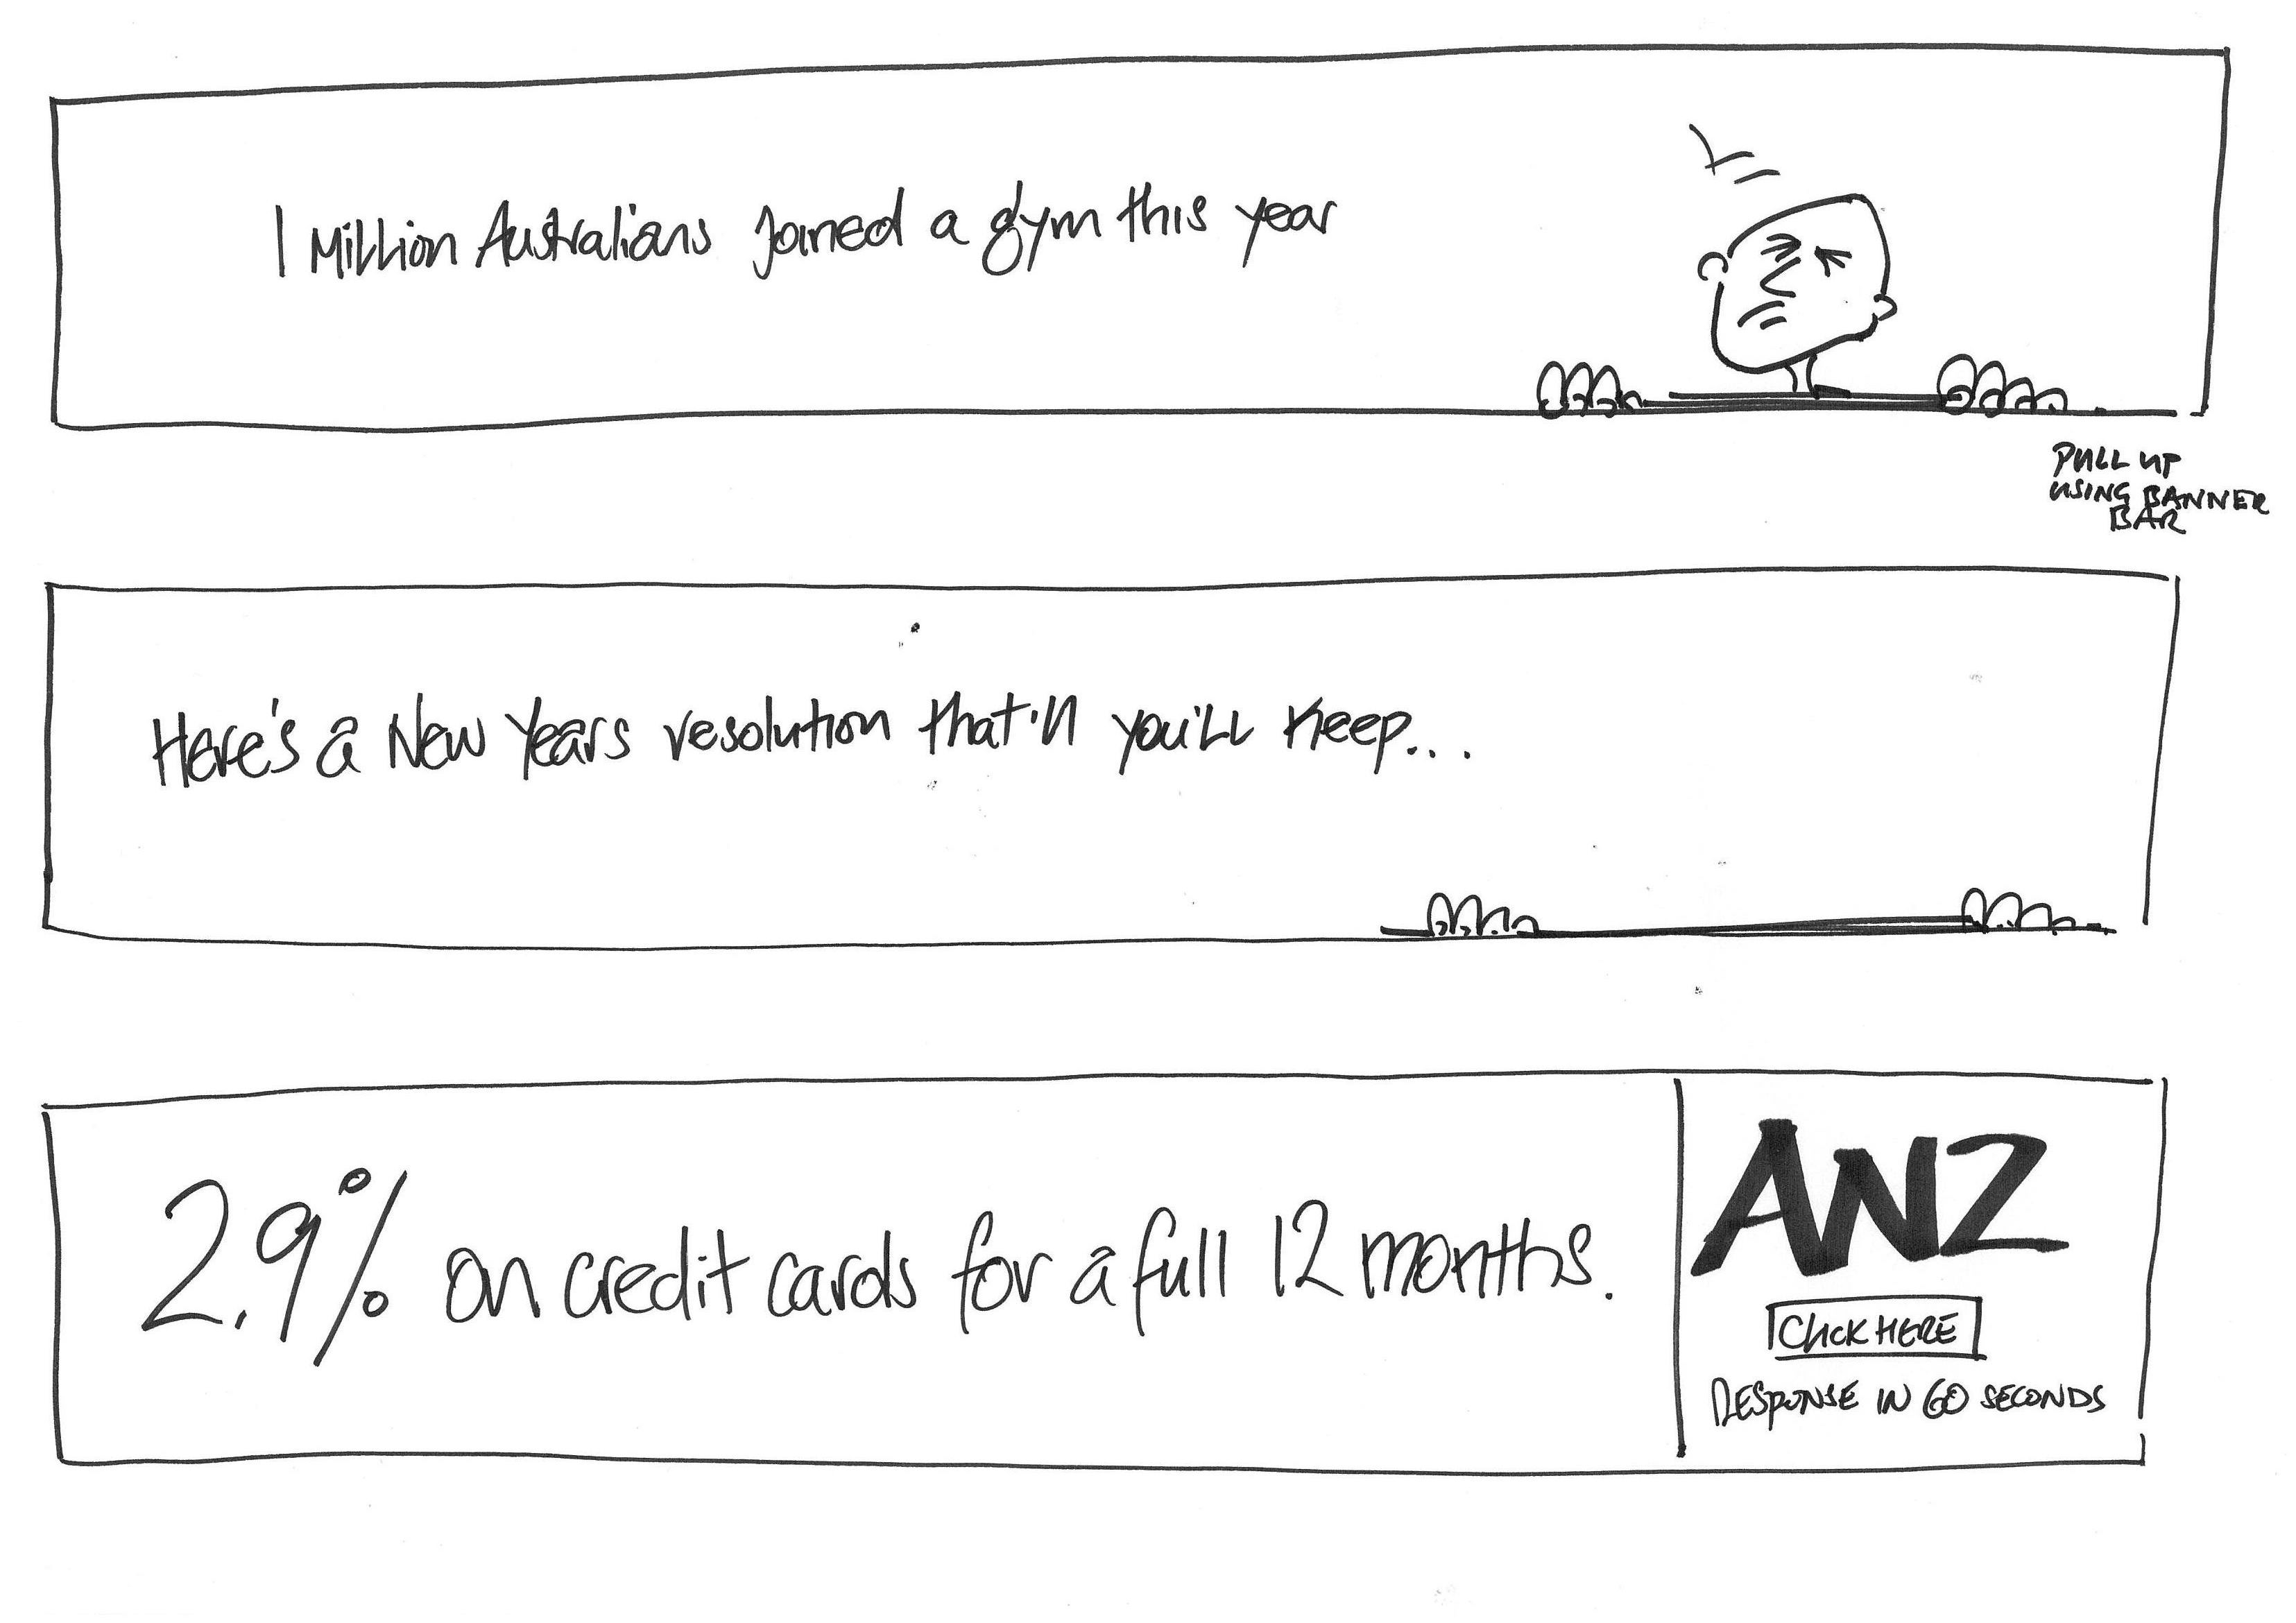 1 Million Australians joined a gym this year
PULL UP
USING BANNER
BAR
Here's a New Years resolution that'll you'll keep...
2.9% on credit cards for a full 12 months.
ANZ
CLICK HERE
RESPONSE IN 60 SECONDS